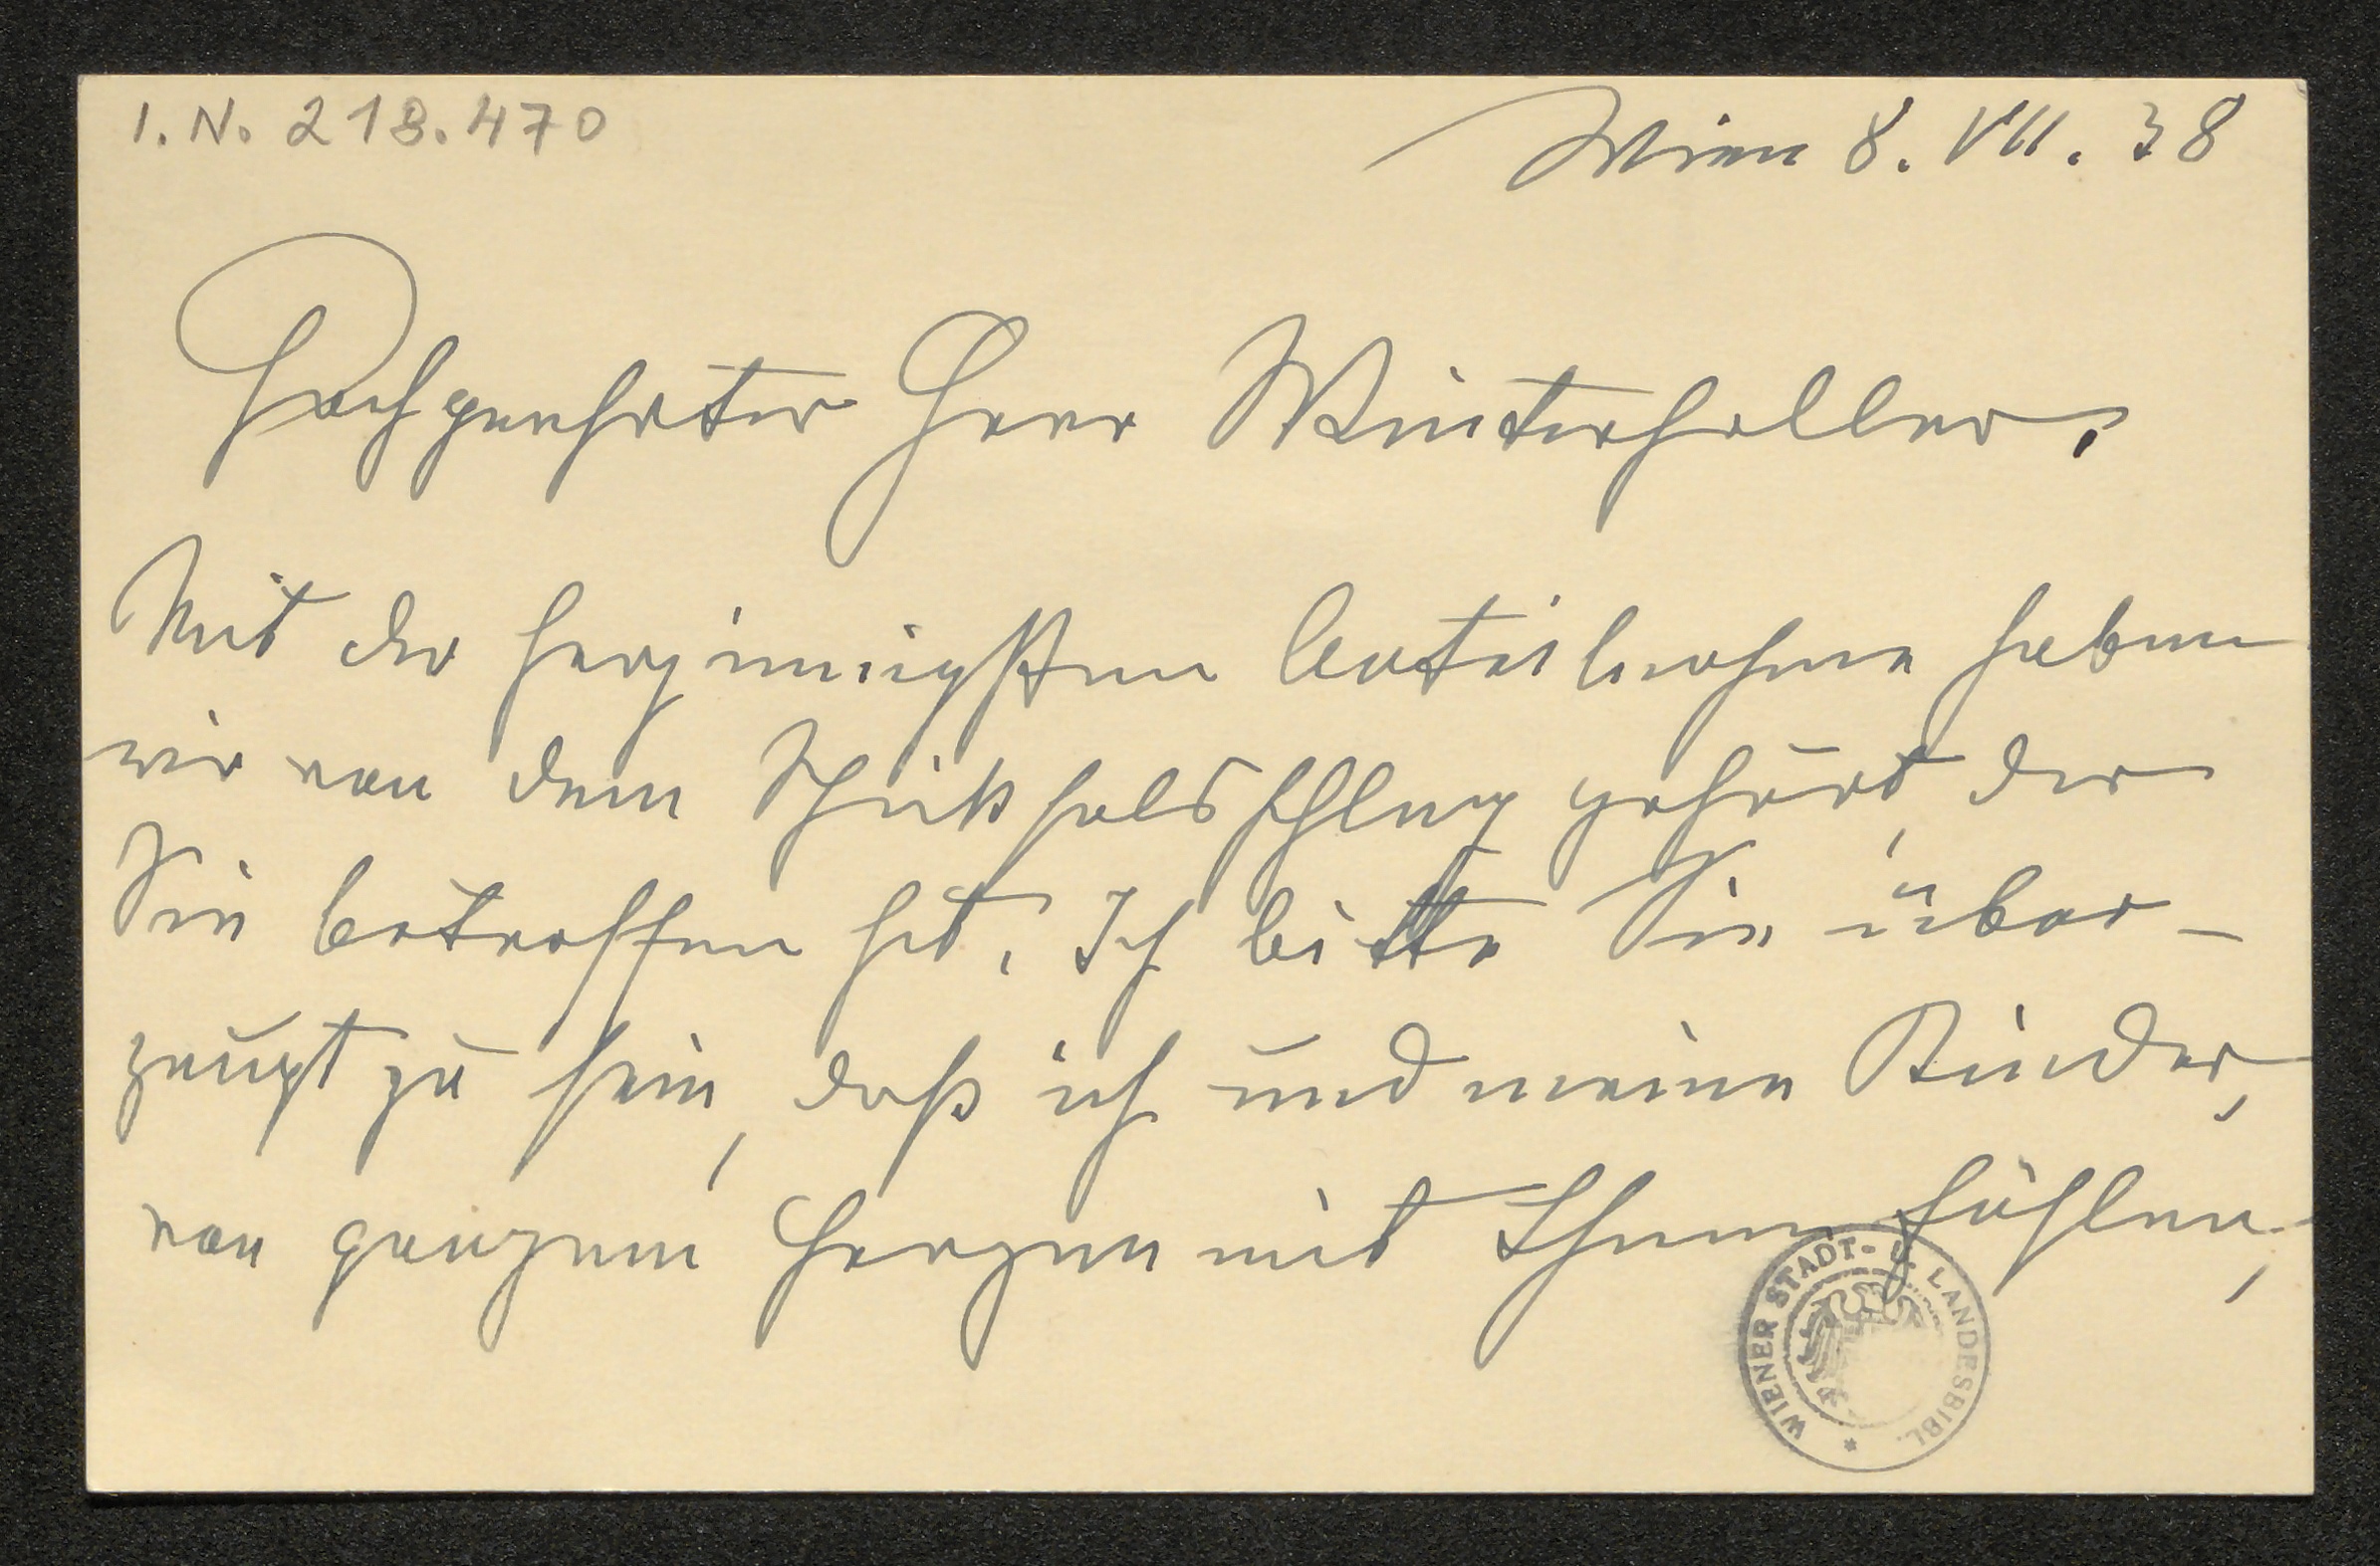 I. N. 218.470
Wien 8. VII. 38
Hochgeehrter Herr Winterholler.
Mit der herzinnigsten Anteilnahme haben
wir von dem Schicksalsschlag gehört, der
Sie betroffen hat. Ich bitte Sie über-
zeugt zu sein, daß ich und meine Kinder,
von ganzem Herzen mit Ihnen fühlen,
WIENER STADT- U. LANDESBIBL. *